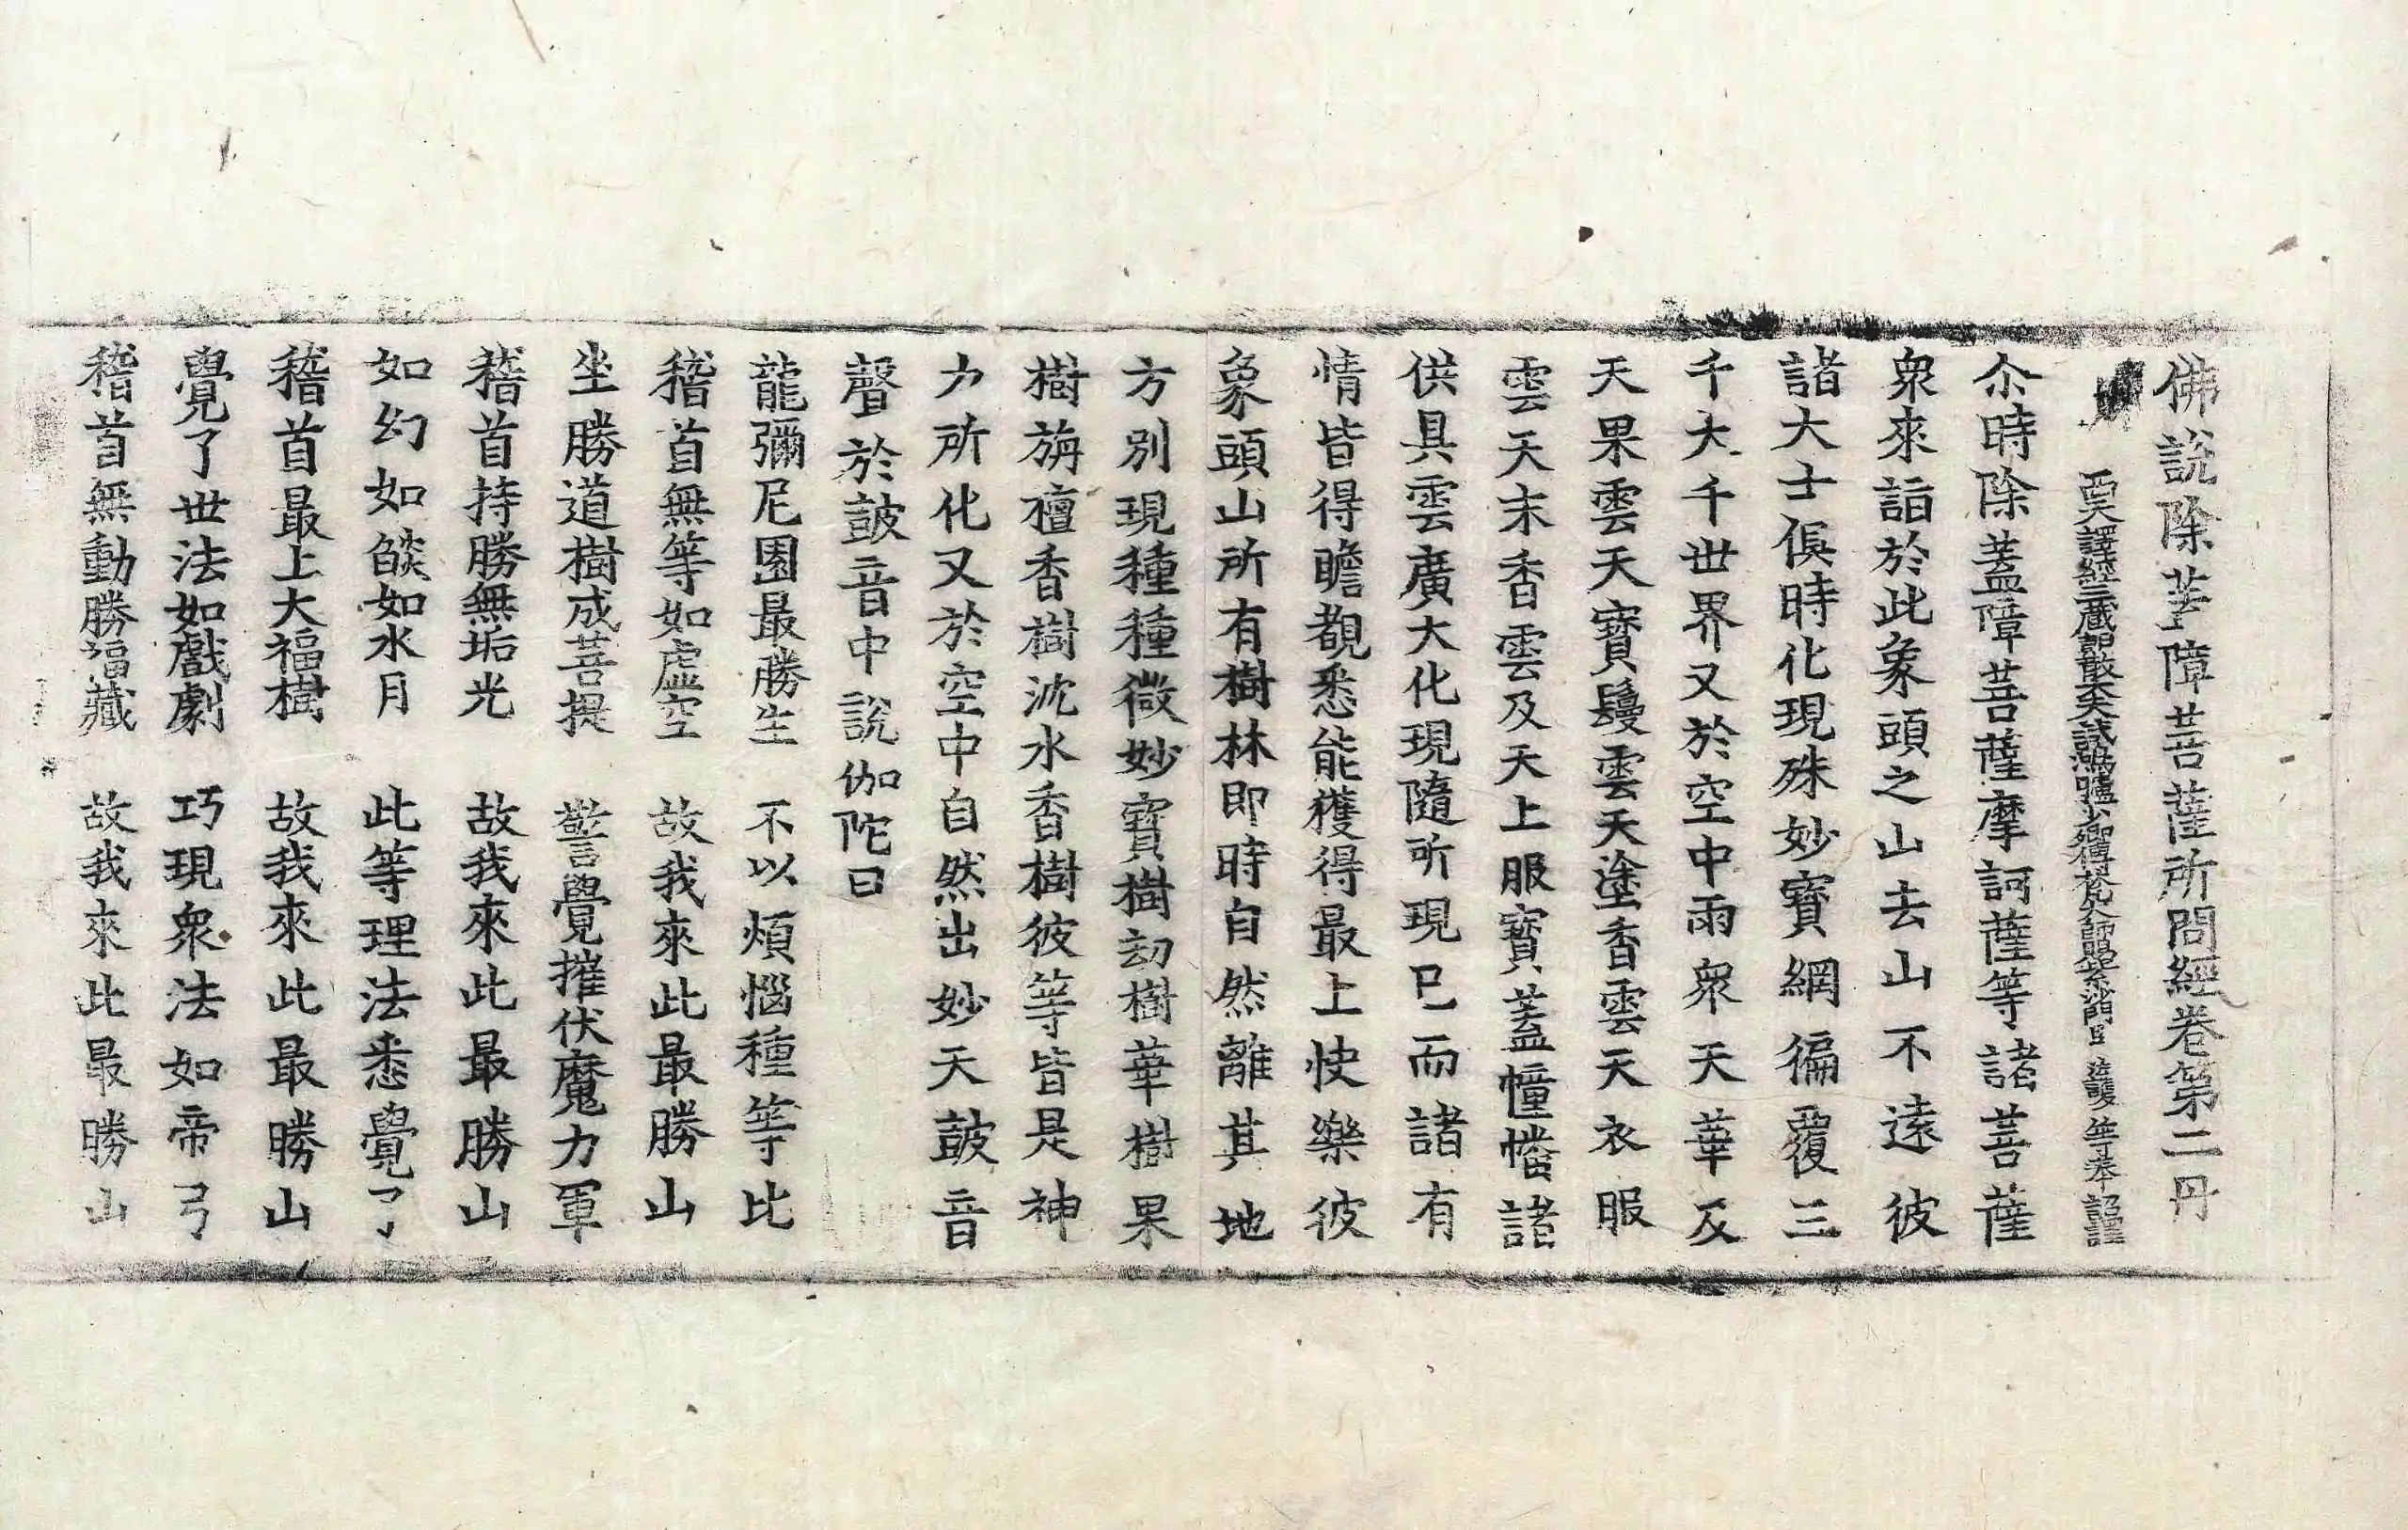 佛說除蓋障菩薩所問經卷第二丹
西天譯經三藏朝散大夫試鴻臚少卿傳梵大師賜紫沙門臣法護等奉詔譯
尒時除蓋障菩薩摩訶薩等諸菩薩
衆來詣於此象頭之山去山不遠彼
諸大士俱時化現殊妙寶網徧覆三
千大千世界又於空中雨衆天華及
天果雲天寶鬘雲天塗香雲天衣服
雲天末香雲及天上服寶蓋幢幡諸
供具雲廣大化現隨所現已而諸有
情皆得瞻覩悉能獲得最上快樂彼
象頭山所有樹林即時自然離其地
方別現種種微妙寶樹劫樹華樹果
樹旃檀香樹沈水香樹彼等皆是神
力所化又於空中自然出妙天鼓音
聲於鼓音中說伽陀曰
龍彌尼園最勝生　不以煩惱種等比
稽首無等如虛空　故我來此最勝山
坐勝道樹成菩提　警覺摧伏魔力軍
稽首持勝無垢光　故我來此最勝山
如幻如燄如水月　此等理法悉覺了
稽首最上大福樹　故我來此最勝山
覺了世法如戲劇　巧現衆法如帝弓
稽首無動勝福藏　故我來此最勝山